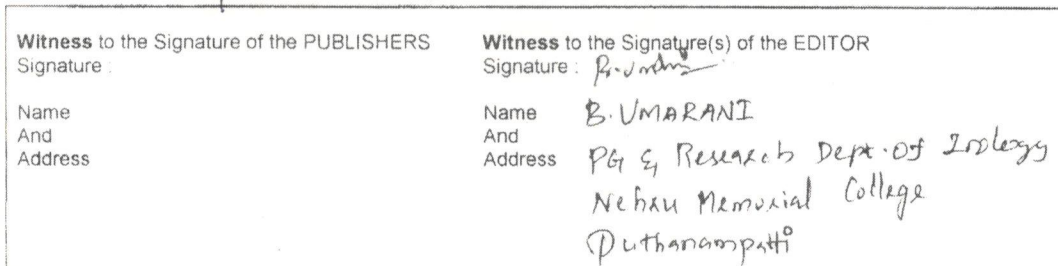 Witness to the Signature of the PUBLISHERS
Signature :
Name
And
Address
Witness to the Signature(s) of the EDITOR
Signature :
Name B. UMARANI
And
Address PG & Research Dept. of Zoology
Nehru Memorial College
Puthanampatti